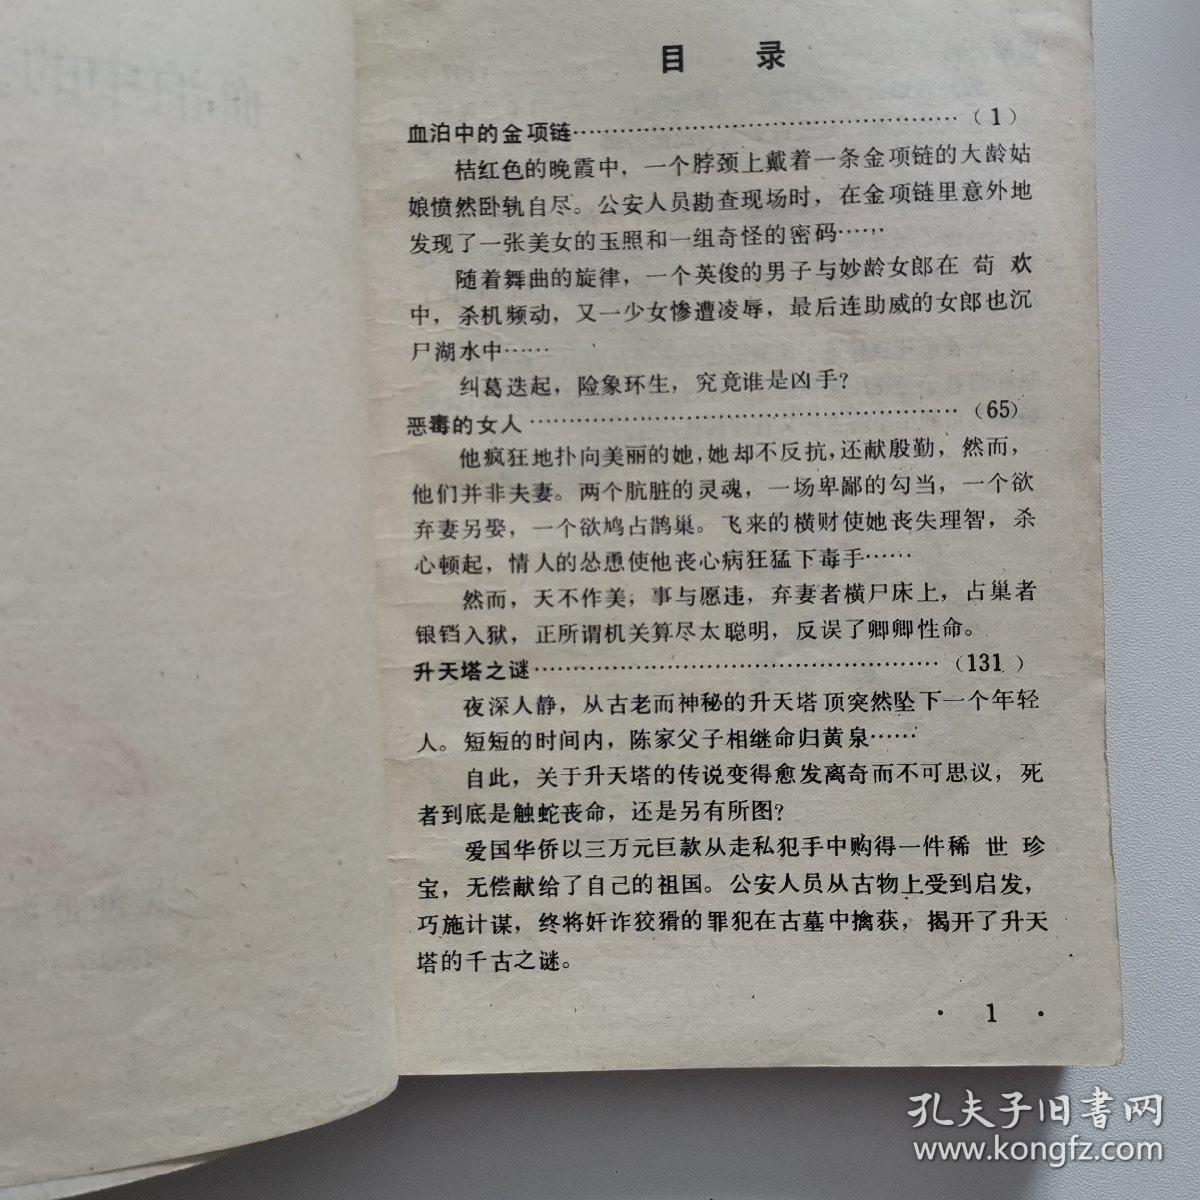 目 录
血泊中的金项链……………………………………………（1）
桔红色的晚霞中，一个脖颈上戴着一条金项链的大龄姑
娘愤然卧轨自尽。公安人员勘查现场时，在金项链里意外地
发现了一张美女的玉照和一组奇怪的密码……
随着舞曲的旋律，一个英俊的男子与妙龄女郎在 苟 欢
中，杀机频动，又一少女惨遭凌辱，最后连助威的女郎也沉
尸湖水中……
纠葛迭起，险象环生，究竟谁是凶手？
恶毒的女人……………………………………………（65）
他疯狂地扑向美丽的她，她却不反抗，还献殷勤，然而，
他们并非夫妻。两个肮脏的灵魂，一场卑鄙的勾当，一个欲
弃妻另娶，一个欲鸠占鹊巢。飞来的横财使她丧失理智，杀
心顿起，情人的怂恿使他丧心病狂猛下毒手……
然而，天不作美，事与愿违，弃妻者横尸床上，占巢者
锒铛入狱，正所谓机关算尽太聪明，反误了卿卿性命。
升天塔之谜……………………………………………（131）
夜深人静，从古老而神秘的升天塔顶突然坠下一个年轻
人。短短的时间内，陈家父子相继命归黄泉……
自此，关于升天塔的传说变得愈发离奇而不可思议，死
者到底是触蛇丧命，还是另有所图？
爱国华侨以三万元巨款从走私犯手中购得一件稀 世 珍
宝，无偿献给了自己的祖国。公安人员从古物上受到启发，
巧施计谋，终将奸诈狡猾的罪犯在古墓中擒获，揭开了升天
塔的千古之谜。
· 1 ·
孔夫子旧书网
www.kongfz.com